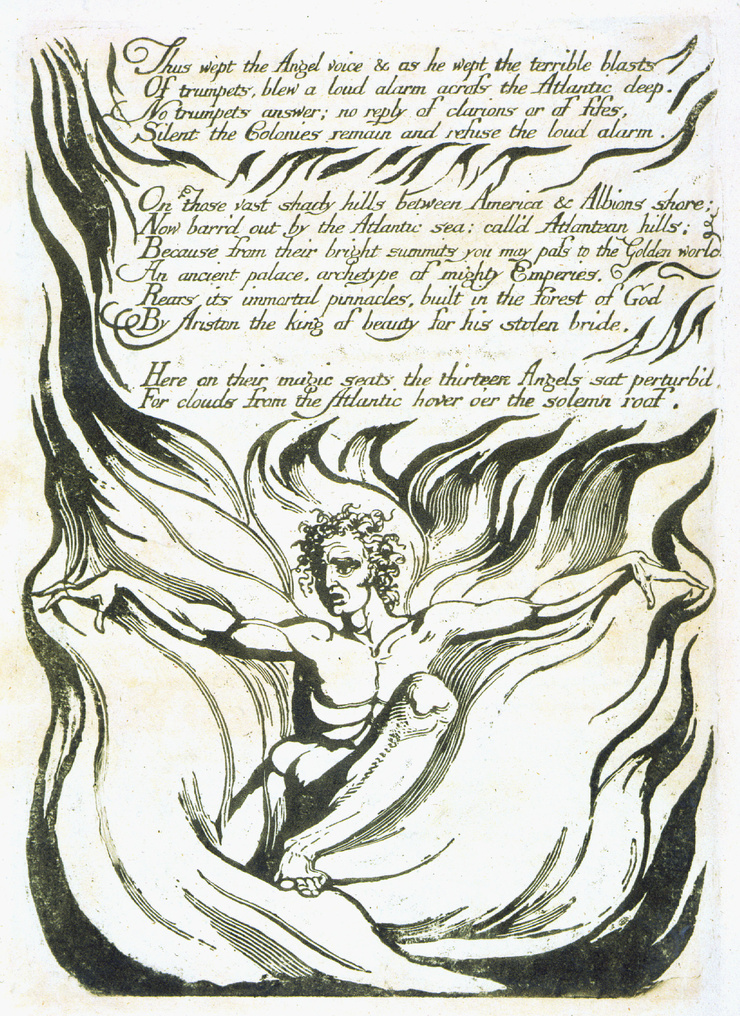 Thus wept the Angel voice & as he wept the terrible blasts
Of trumpets, blew a loud alarm acroſs the Atlantic deep.
No trumpets answer; no reply of clarions or of fifes,
Silent the Colonies remain and refuse the loud alarm.
On those vast shady hills between America & Albions shore;
Now barr'd out by the Atlantic sea: call'd Atlantean hills:
Because from their bright summits you may paſs to the Golden world
An ancient palace, archetype of mighty Emperies,
Rears its immortal pinnacles, built in the forest of God
By Ariston the king of beauty for his stolen bride.
Here on their magic seats the thirteen Angels sat perturb'd
For clouds from the Atlantic hover o'er the solemn roof.